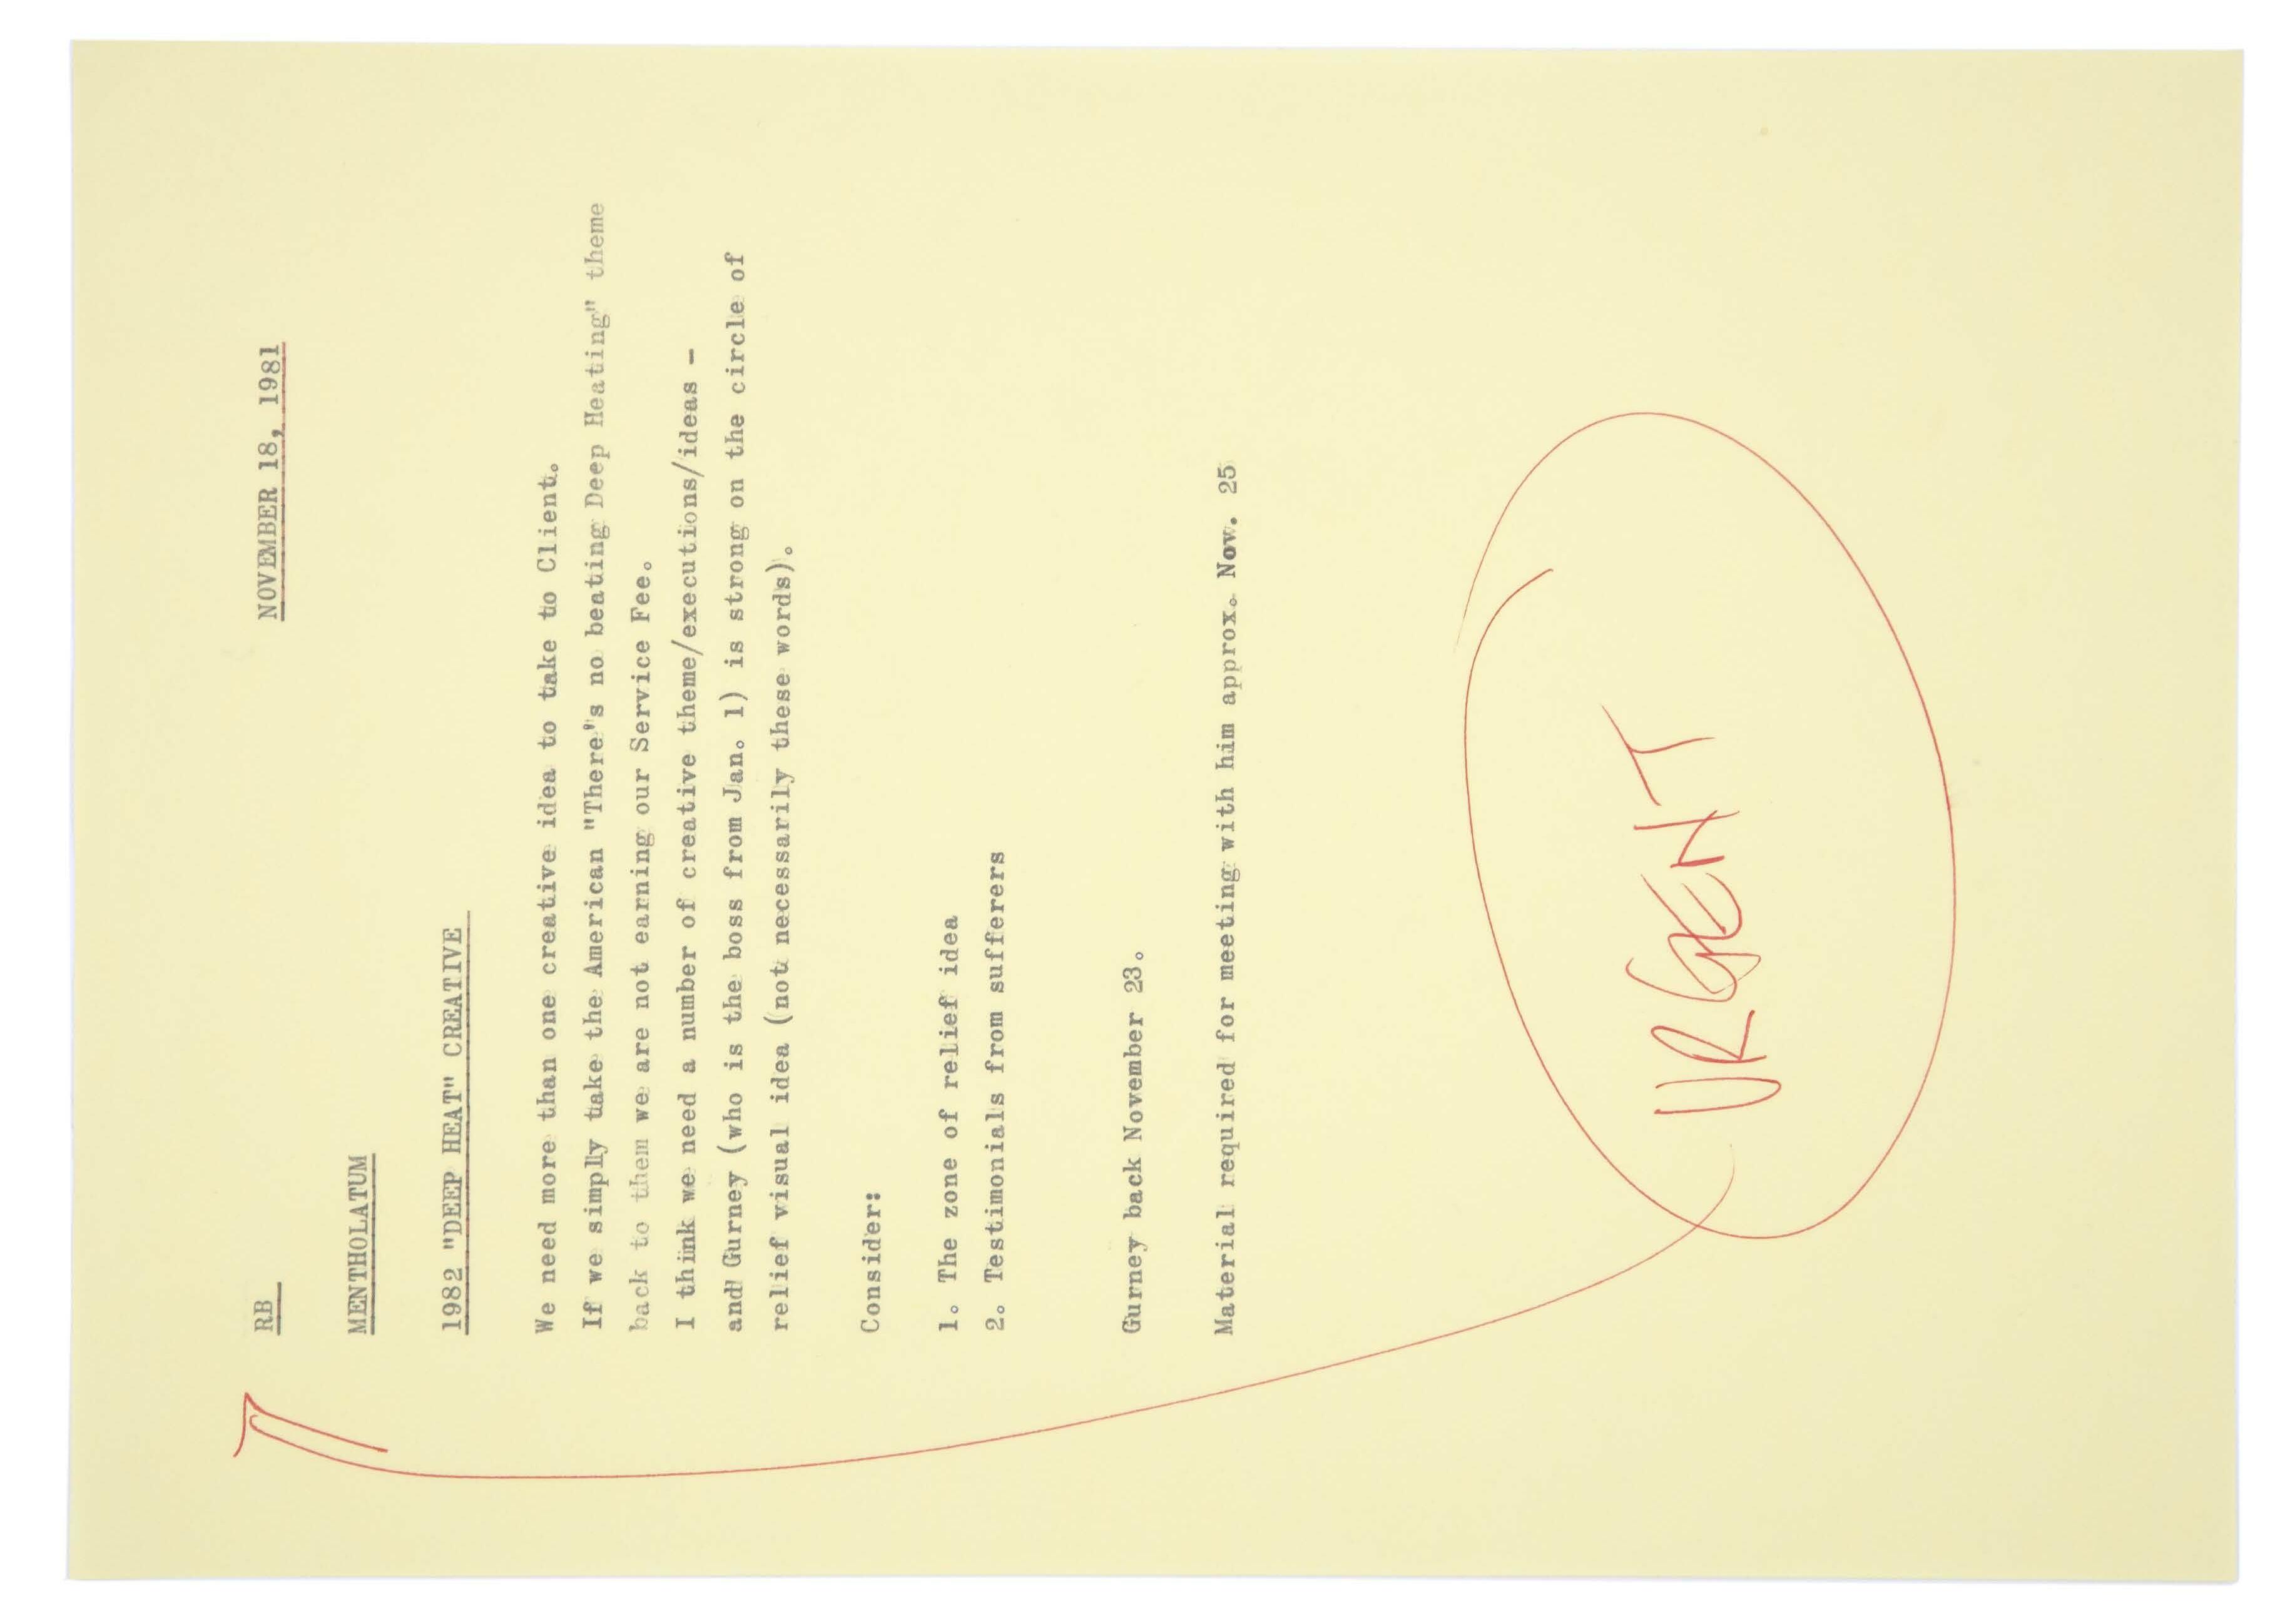 RB NOVEMBER 18, 1981
MENTHOLATUM
1982 "DEEP HEAT" CREATIVE
We need more than one creative idea to take to Client.
If we simply take the American "There's no beating Deep Heating" theme
back to them we are not earning our Service Fee.
I think we need a number of creative theme/executions/ideas -
and Gurney (who is the boss from Jan. 1) is strong on the circle of
relief visual idea (not necessarily these words).
Consider:
1. The zone of relief idea
2. Testimonials from sufferers
Gurney back November 23.
Material required for meeting with him approx. Nov. 25
URGENT